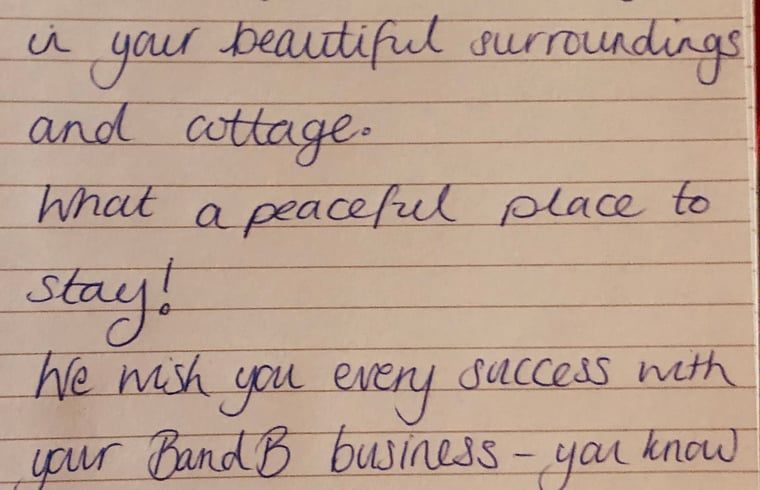 in your beautiful surroundings
and cottage.
What a peaceful place to
stay!
We wish you every success with
your BandB business - you know